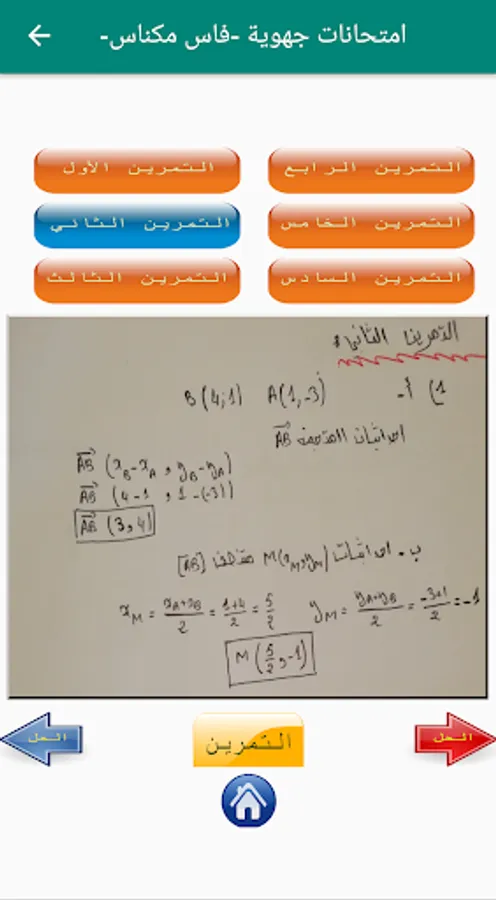 امتحانات جهوية -فاس مكناس-
التمرين الرابع
التمرين الأول
التمرين الخامس
التمرين الثاني
التمرين السادس
التمرين الثالث
التمرين الثاني:
1) أ- A(1,-3) B(4;1)
احداثيات المتجهة AB⃗
AB⃗ (x_B-x_A , y_B-y_A)
AB⃗ (4-1 , 1-(-3))
AB⃗ (3,4)
ب- احداثيات M(x_M,y_M) منتصف [AB]
x_M = (x_A+x_B)/2 = (1+4)/2 = 5/2 y_M = (y_A+y_B)/2 = (-3+1)/2 = -1
M(5/2,-1)
الحل
التمرين
الحل